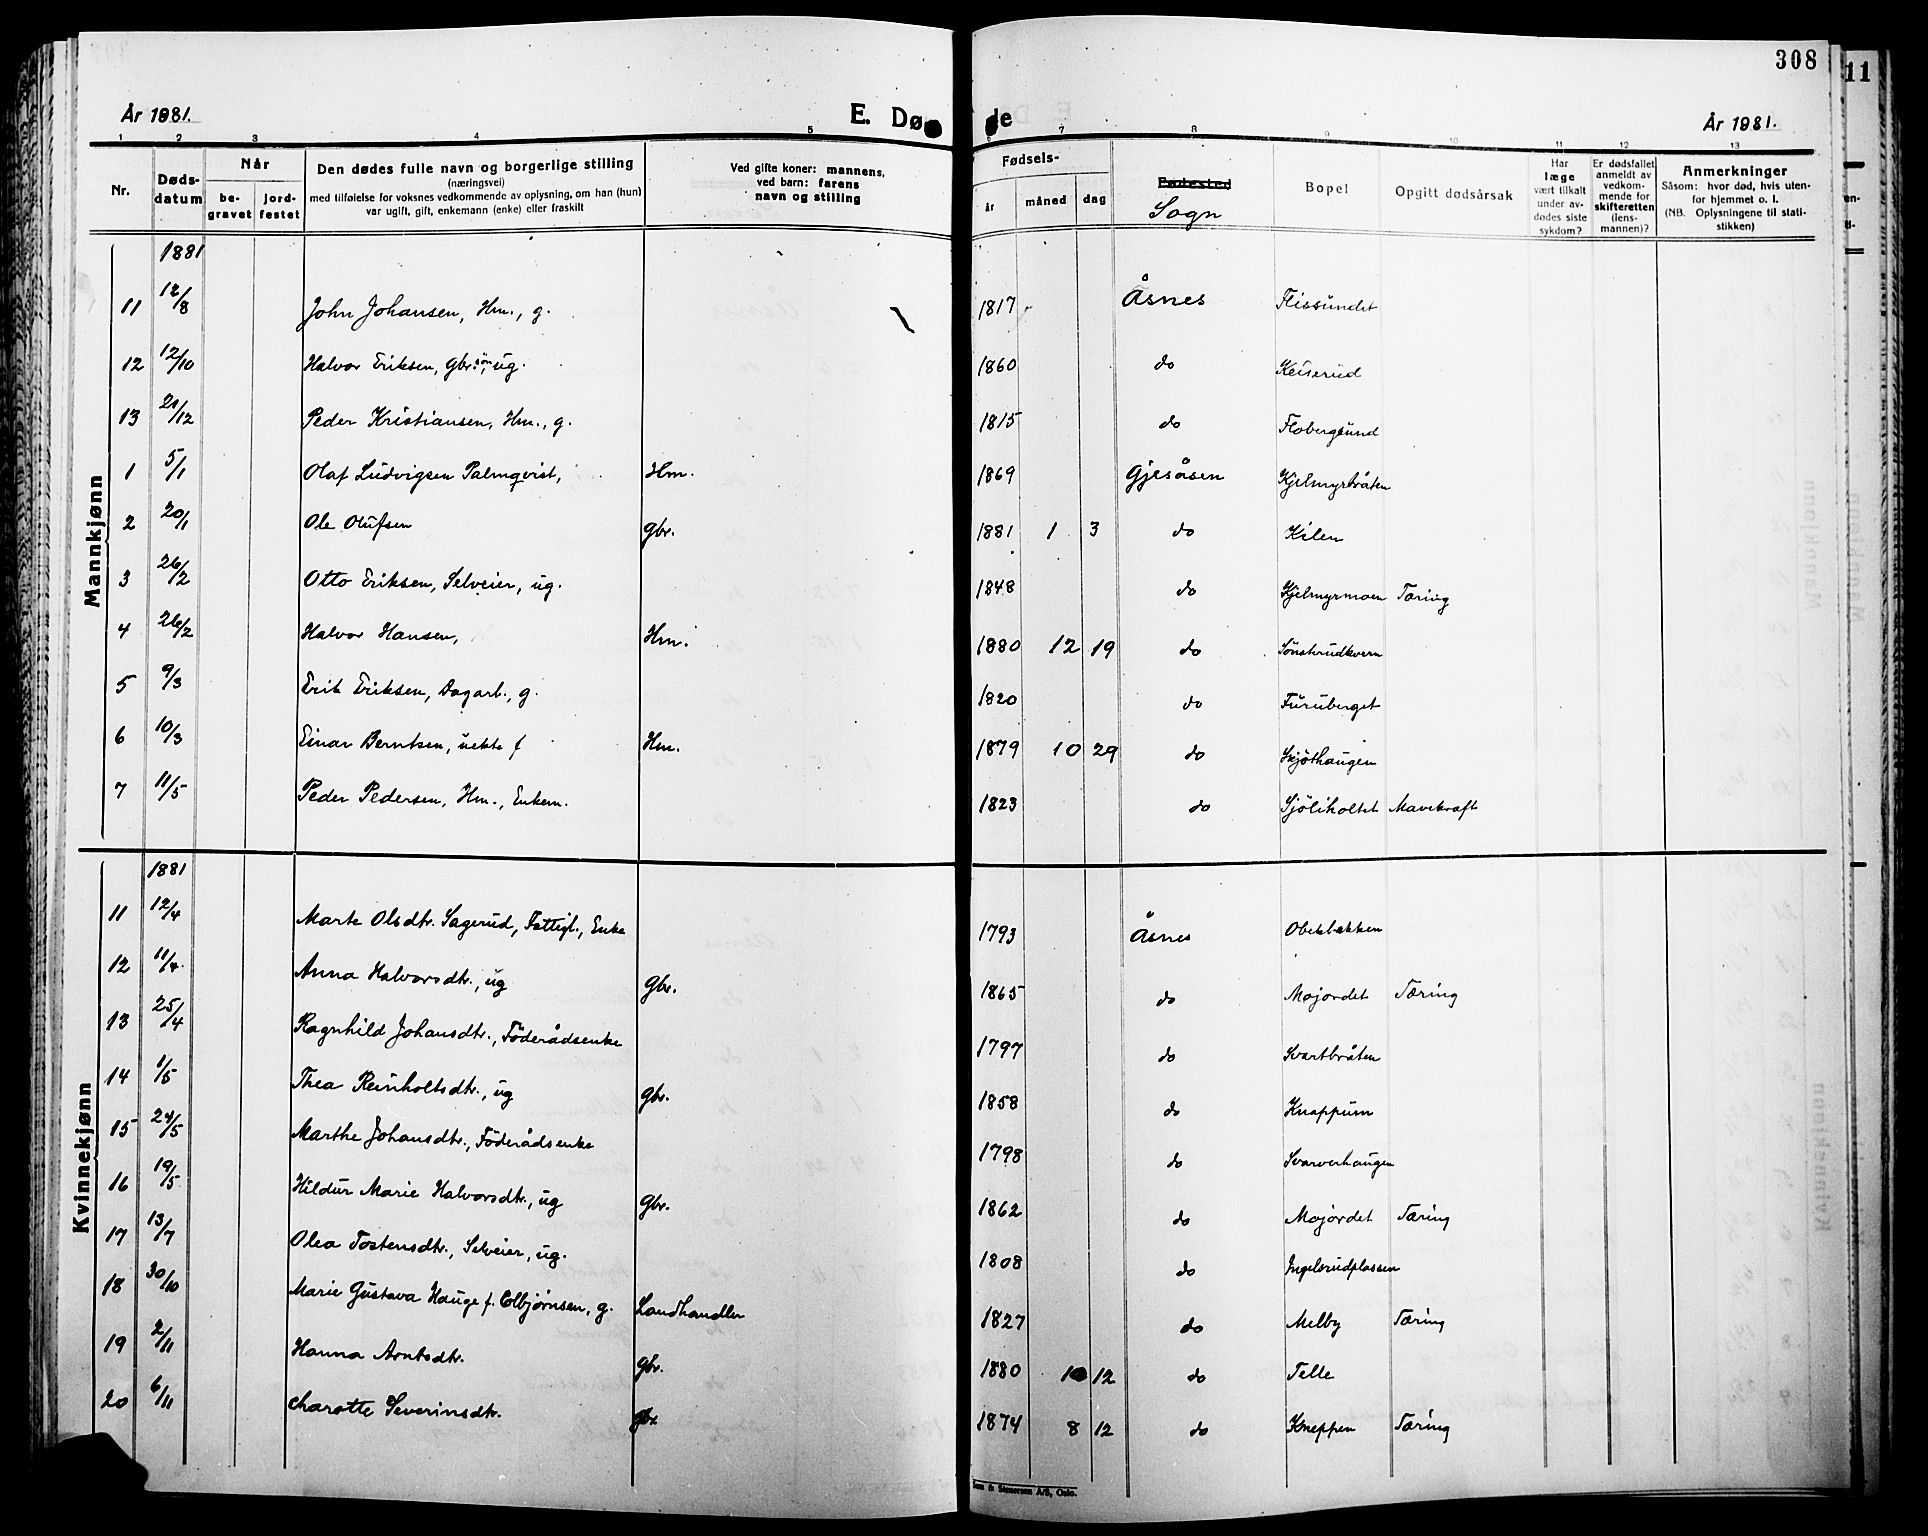 308
11
År 1881.
E. Dø de
År 1881.
1 2 3 4 5 6 7 8 9 10 11 12 13
Nr. Døds-datum Når be-gravet jord-festet Den dødes fulle navn og borgerlige stilling (næringsvei) med tilføielse for voksnes vedkommende av oplysning, om han (hun) var ugift, gift, enkemann (enke) eller fraskilt Ved gifte koner: mannens, ved barn: farens navn og stilling Fødsels- år måned dag Fødested Sogn Bopel Opgitt dødsårsak Har læge vært tilkalt under av-dødes siste sykdom? Er dødsfallet anmeldt av vedkom-mende for skifteretten (lens-mannen)? Anmerkninger Såsom: hvor død, hvis uten-for hjemmet o. l. (NB. Oplysningene til stati-stikken)
Mannkjønn
1881
11 12/8 John Johansen, Hm., g. 1817 Åsnes Flissundet
12 12/10 Halvor Eriksen, gbr. søn, ug. 1860 do Keiserud
13 21/12 Peder Kristiansen, Hm., g. 1815 do Flobergsund
1 5/1 Olaf Ludvigsen Palmqvist, Hm. 1869 Gjesåsen Kjelmyrbråten
2 20/1 Ole Olufsen gbr. 1881 1 3 do Kilen
3 26/2 Otto Eriksen, Selveier, ug. 1848 do Kjelmyrmoen Tæring
4 26/2 Halvor Hansen, Hm. 1880 12 19 do Sönsterudkvern
5 9/3 Erik Eriksen, Dagarb., g. 1820 do Furuberget
6 10/3 Einar Berntsen, uekte f Hm. 1879 10 29 do Skjöthaugen
7 11/5 Peder Pedersen, Hm., Enkem. 1823 do Sjöliholtet Mavekræft
Kvinnekjønn
1881
11 12/4 Marte Olsdtr. Sagerud, Fattigl., Enke 1793 Åsnes Obekbakken
12 11/4 Anna Halvorsdtr., ug gbr. 1865 do Mojordet Tæring
13 25/4 Ragnhild Johansdtr., Föderådsenke 1797 do Svartbråten
14 1/5 Thea Reinholtsdtr., ug gbr. 1858 do Knappum
15 24/5 Marthe Johansdtr., Föderådsenke 1798 do Svarverhaugen
16 19/5 Hildur Marie Halvorsdtr., ug gbr. 1862 do Mojordet Tæring
17 13/7 Olea Tostensdtr., Selveier, ug. 1808 do Ingelsrudplassen
18 30/10 Marie Gustava Hauge f. Olbjørnsen, g. Landhandler 1827 do Melby Tæring
19 2/11 Hanna Arntsdtr. gbr. 1880 10 12 do Telle
20 6/11 Charotte Severinsdtr. gbr 1874 8 12 do Kneppen Tæring
Sem & Stenersen A/S, Oslo.